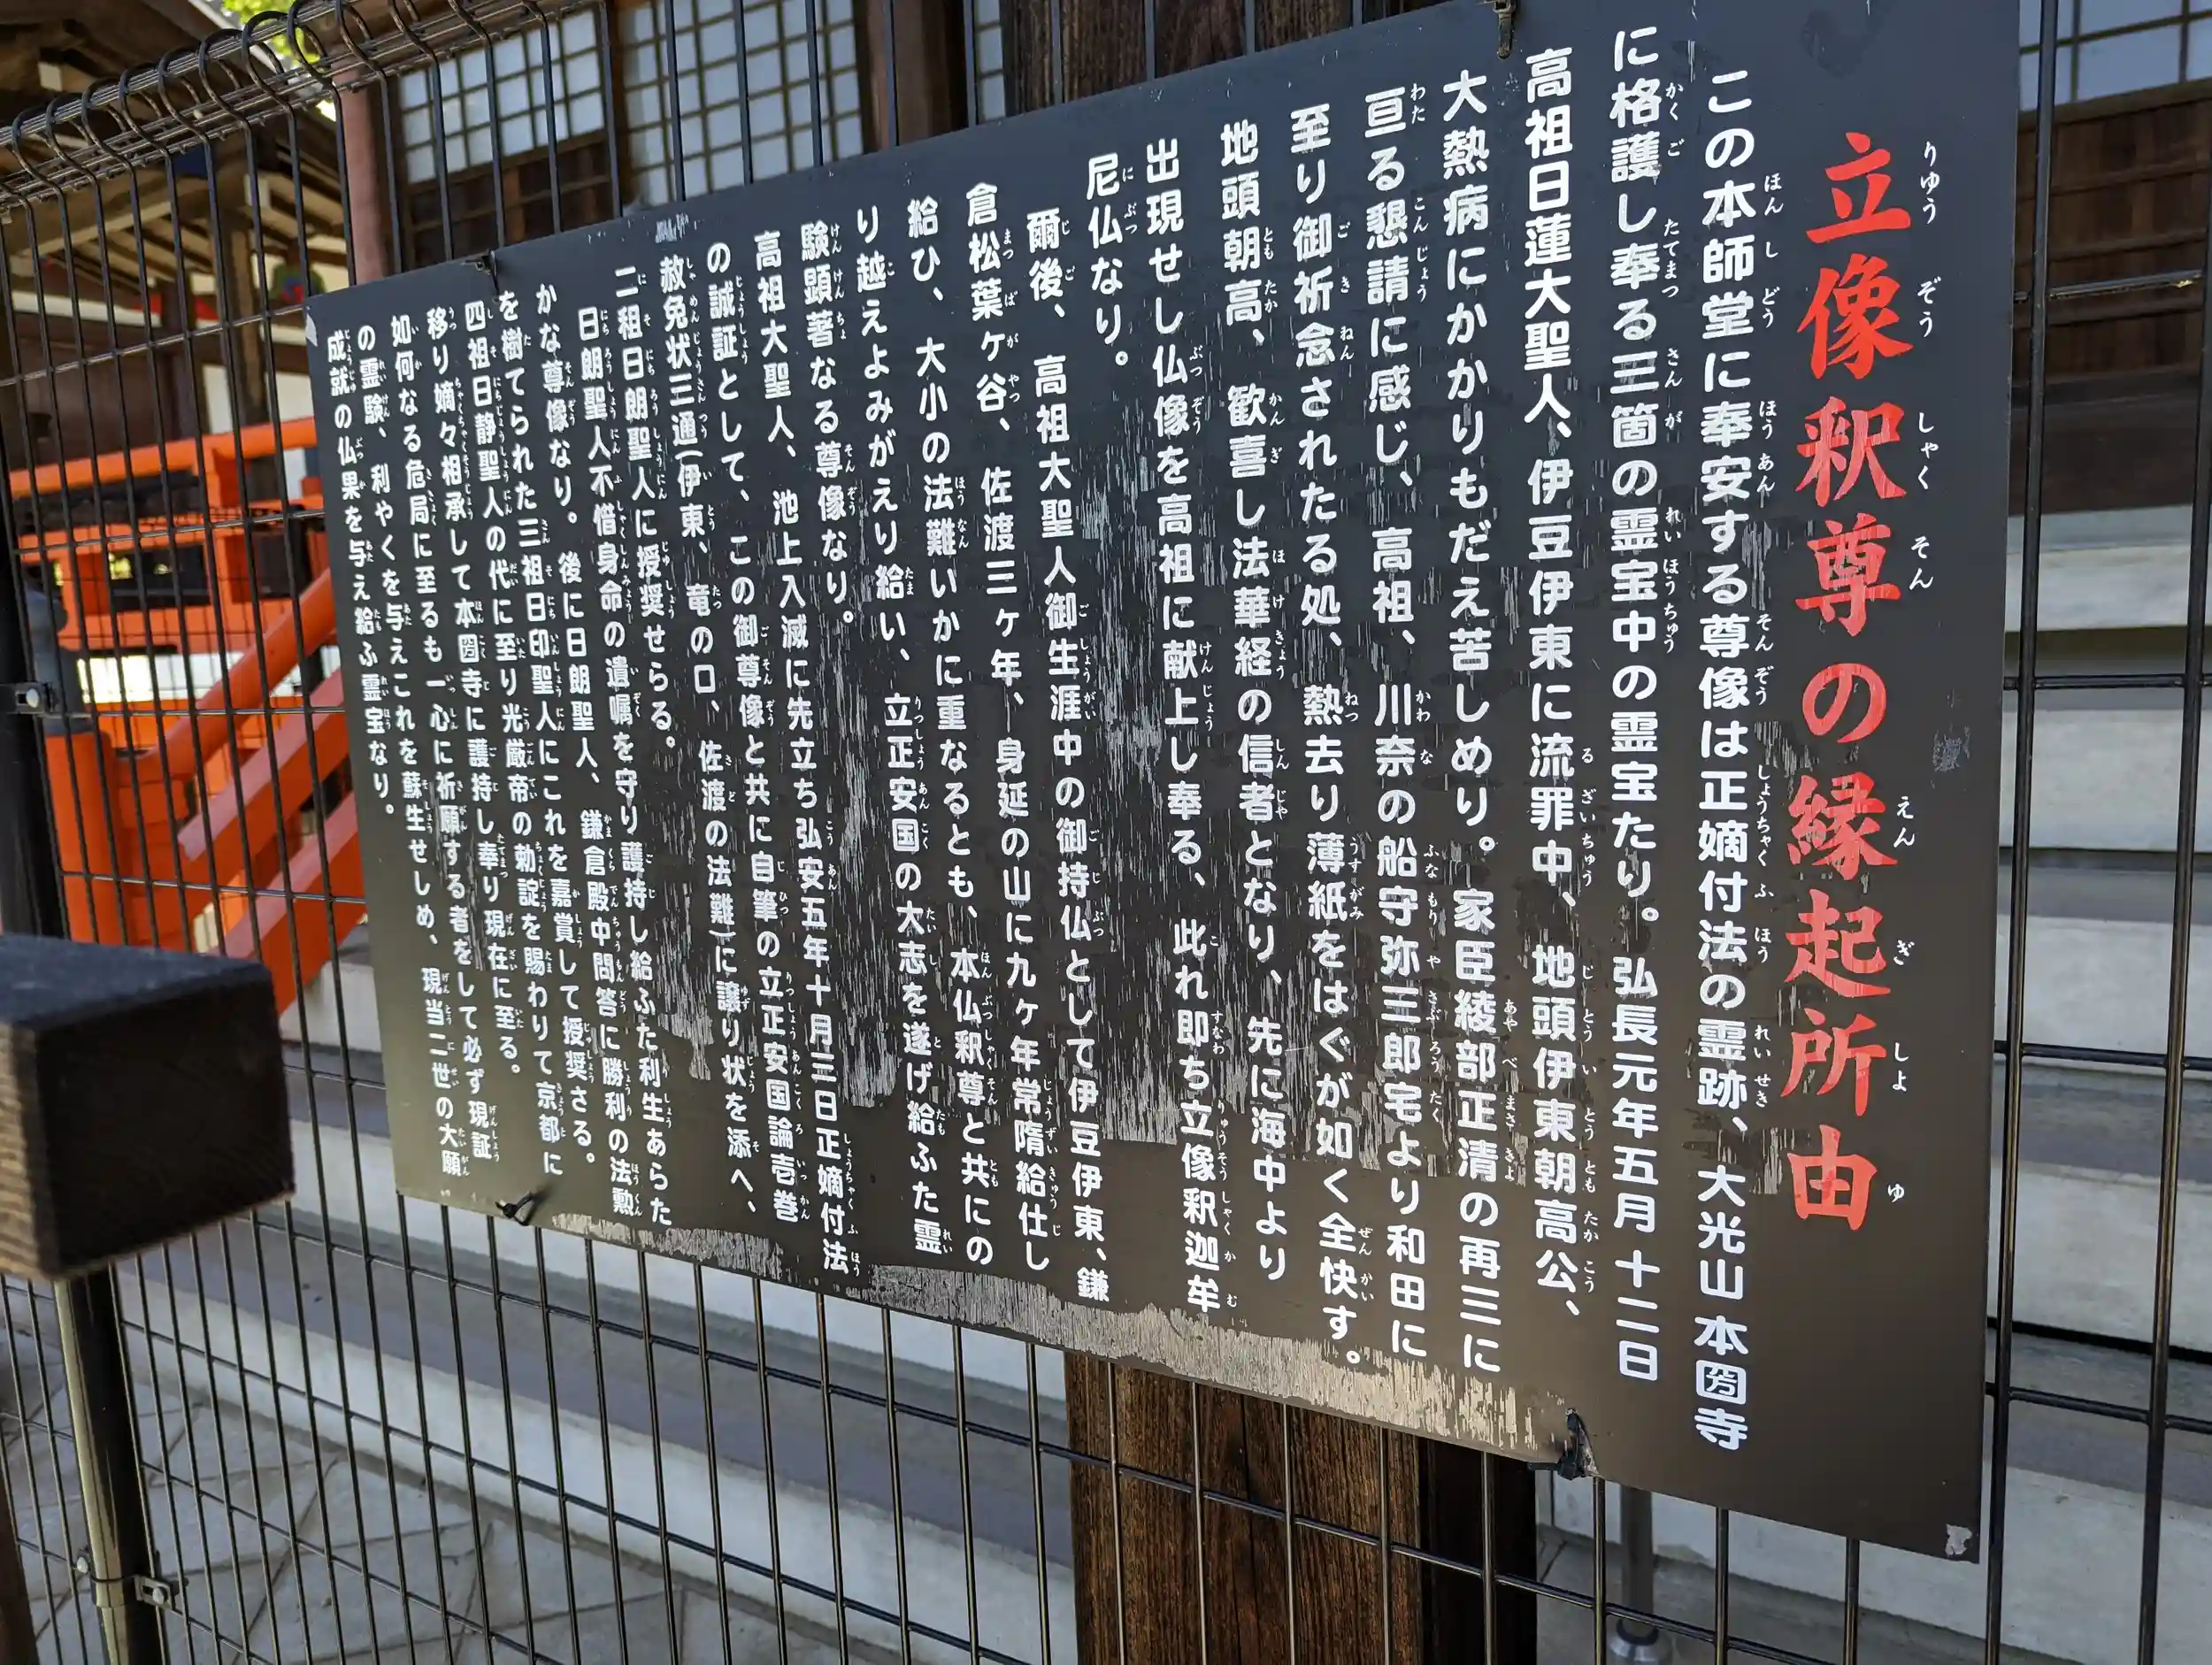 立像釈尊の縁起所由
この本師堂に奉安する尊像は正嫡付法の霊跡、大光山本圀寺
に格護し奉る三箇の霊宝中の霊宝たり。弘長元年五月十二日
高祖日蓮大聖人、伊豆伊東に流罪中、地頭伊東朝高公、
大熱病にかかりもだえ苦しめり。家臣綾部正清の再三に
亘る懇請に感じ、高祖、川奈の船守弥三郎宅より和田に
至り御祈念されたる処、熱去り薄紙をはぐが如く全快す。
地頭朝高、歓喜し法華経の信者となり、先に海中より
出現せし仏像を高祖に献上し奉る、此れ即ち立像釈迦牟
尼仏なり。
爾後、高祖大聖人御生涯中の御持仏として伊豆伊東、鎌
倉松葉ヶ谷、佐渡三ヶ年、身延の山に九ヶ年常随給仕し
給ひ、大小の法難いかに重なるとも、本仏釈尊と共にの
り越えよみがえり給い、立正安国の大志を遂げ給ふた霊
験顕著なる尊像なり。
高祖大聖人、池上入滅に先立ち弘安五年十月三日正嫡付法
の誠証として、この御尊像と共に自筆の立正安国論壱巻
赦免状三通(伊東、竜の口、佐渡の法難)に譲り状を添へ、
二祖日朗聖人に授奨せらる。
日朗聖人不惜身命の遺嘱を守り護持し給ふた利生あらた
かな尊像なり。後に日朗聖人、鎌倉殿中問答に勝利の法勲
を樹てられた三祖日印聖人にこれを嘉賞して授奨さる。
四祖日静聖人の代に至り光厳帝の勅諚を賜わりて京都に
移り嫡々相承して本圀寺に護持し奉り現在に至る。
如何なる危局に至るも一心に祈願する者をして必ず現証
の霊験、利やくを与えこれを蘇生せしめ、現当二世の大願
成就の仏果を与え給ふ霊宝なり。